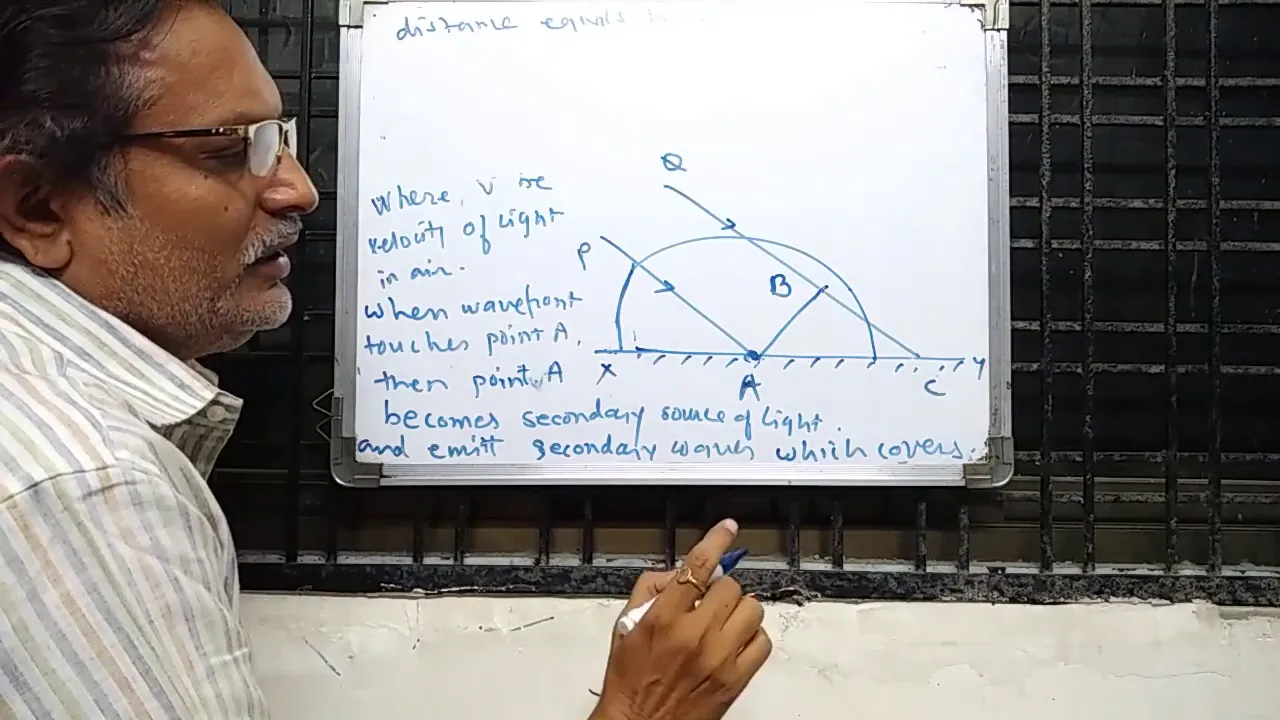 distance equals
Where, v is
velocity of light
in air.
when wavefront
touches point A,
then point A
becomes secondary source of light.
and emitt secondary waves which covers.
Q
P
B
X
A
C
Y